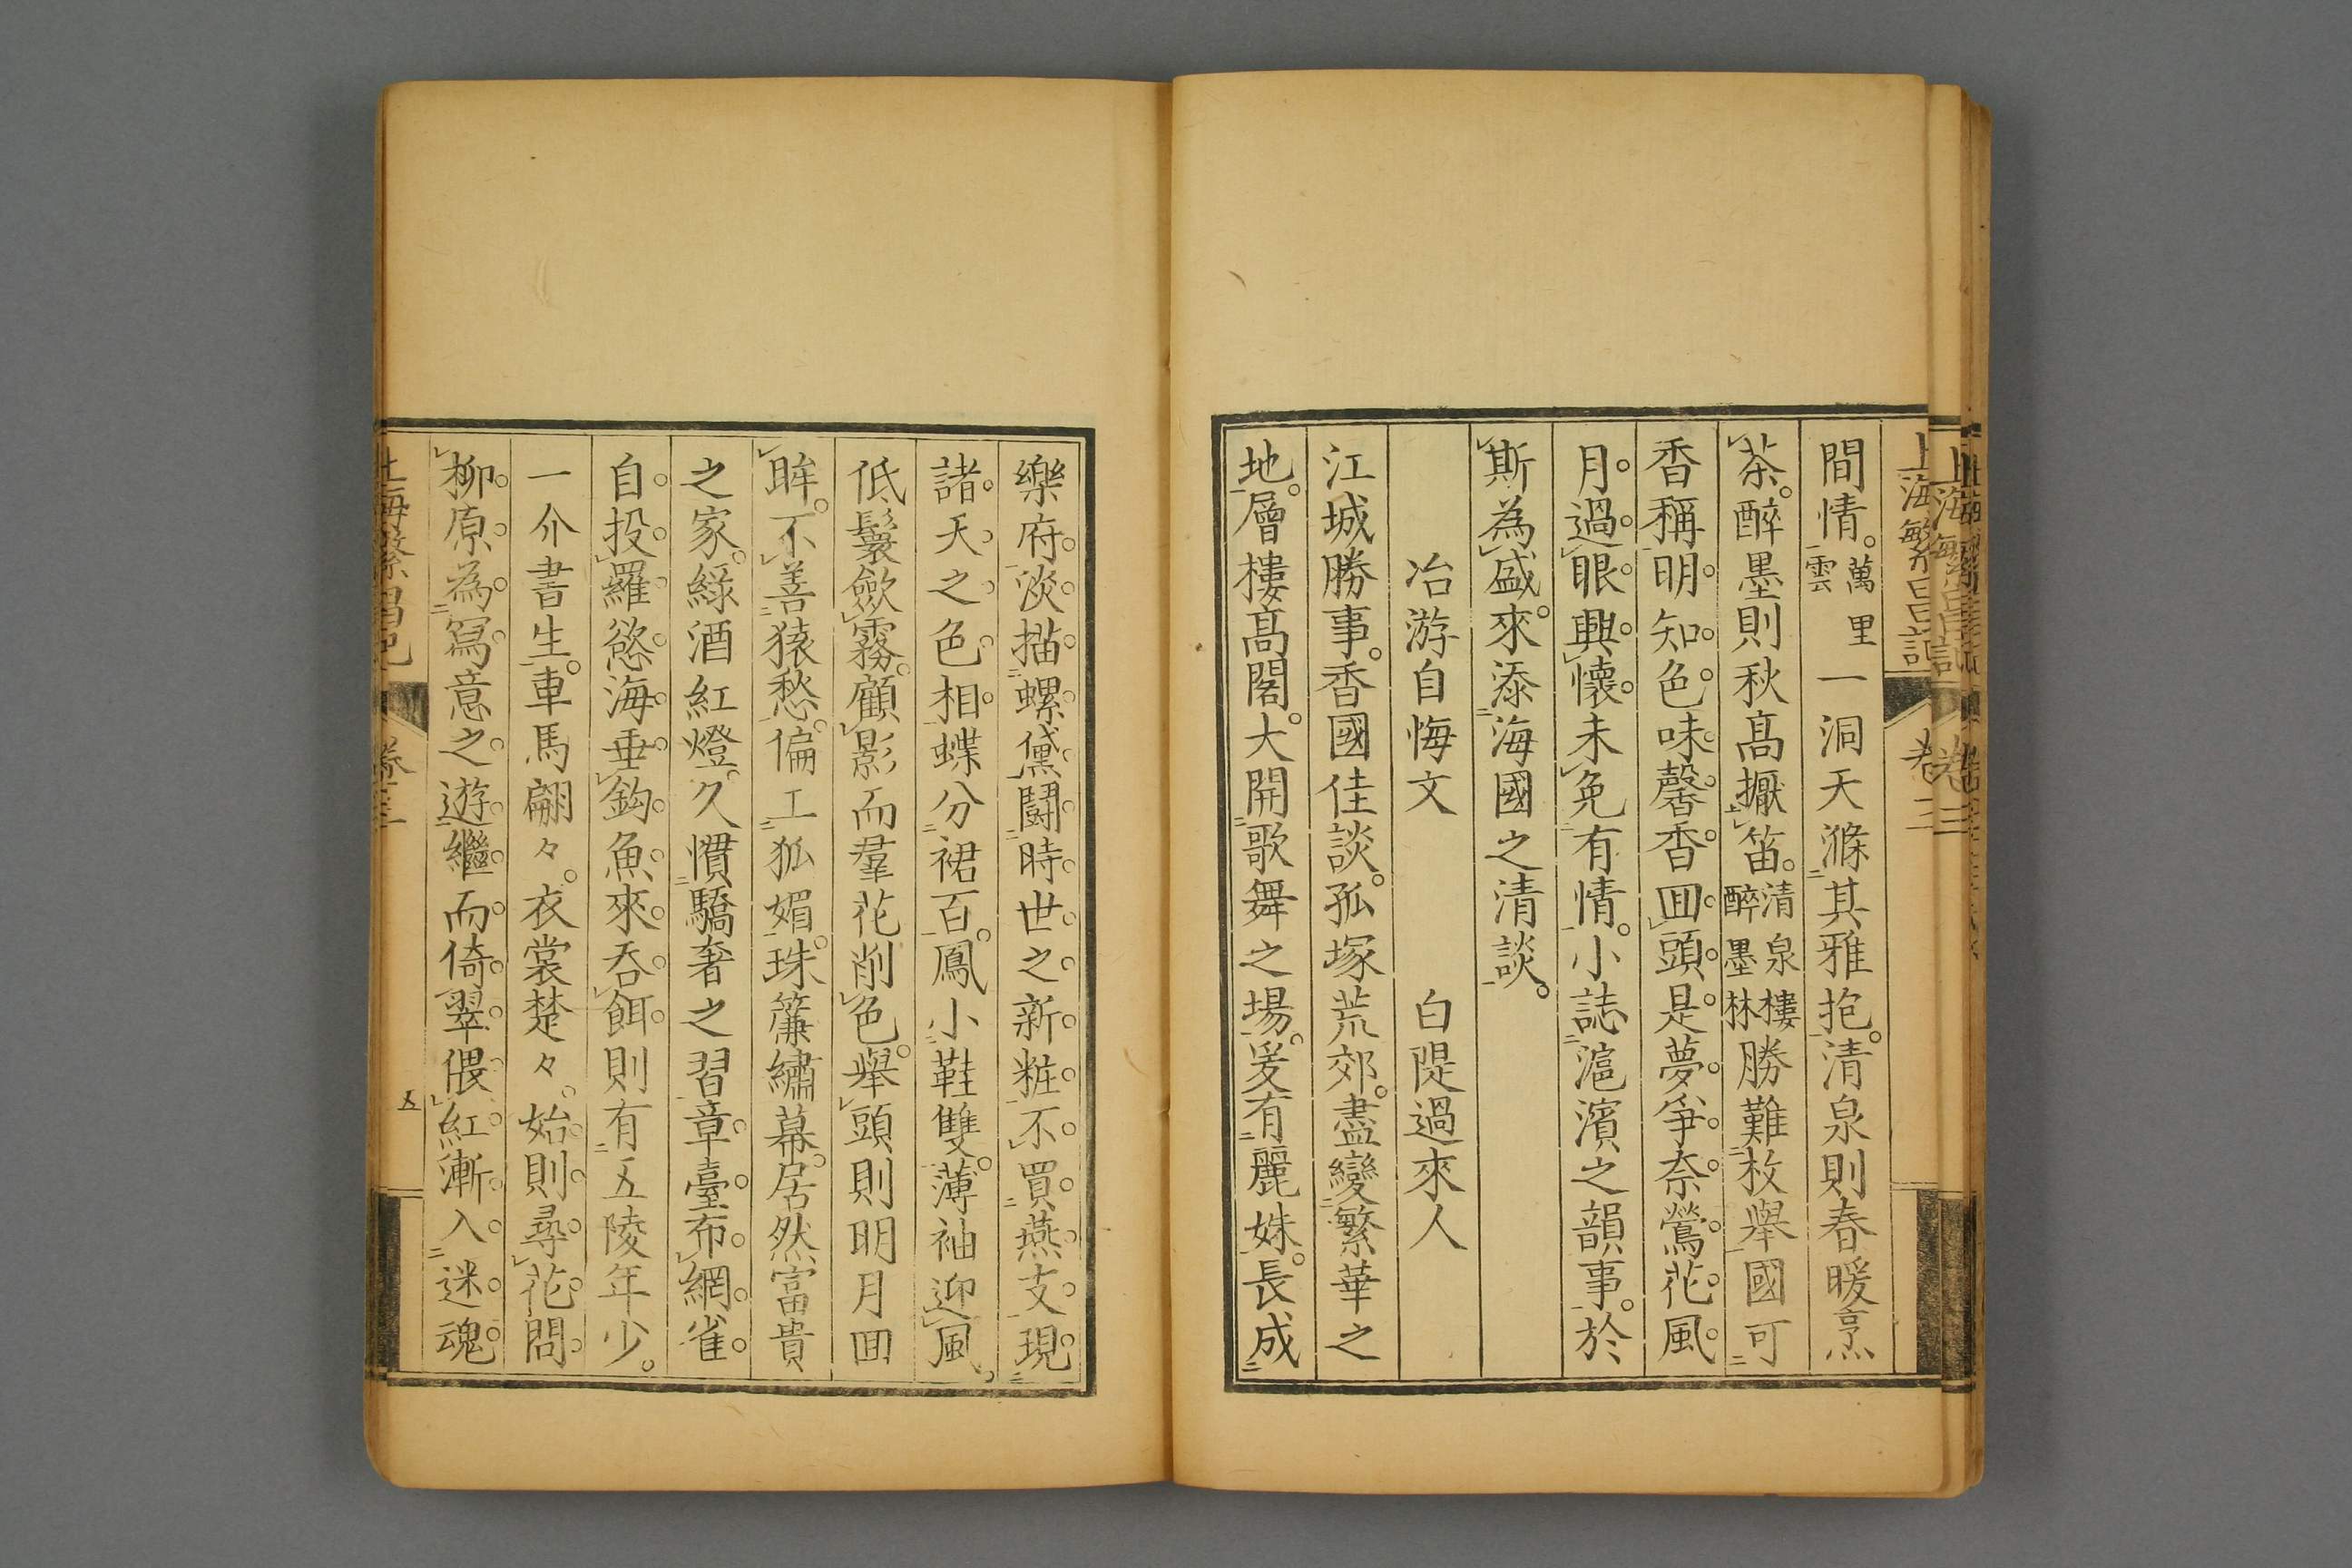 上海繁昌記 卷三
間情。萬里雲一洞天滌其雅抱。清泉則春暖烹
茶。醉墨則秋高擫笛。清泉樓醉墨林勝難枚舉國可
香稱。明知色味馨香。囬頭是夢。爭奈鶯花風
月。過眼興懷。未免有情。小誌滬濱之韻事。於
斯為盛。來添海國之清談。
冶游自悔文 白隄過來人
江城勝事。香國佳談。孤塚荒郊。盡變繁華之
地。層樓高閣。大開歌舞之場。爰有麗姝。長成
樂府。淡描螺黛。鬪時世之新粧。不買燕支。現
諸天之色相。蝶分裙百。鳳小鞋雙。薄袖迎風。
低鬟斂霧。顧影而羣花削色。舉頭則明月囬
眸。不善猿愁。偏工狐媚。珠簾繡幕。居然富貴
之家。綠酒紅燈。久慣驕奢之習。章臺布網。雀
自投羅。慾海垂鈎。魚來吞餌。則有五陵年少。
一介書生。車馬翩々。衣裳楚々。始則尋花問
柳。原為寫意之遊。繼而倚翠偎紅。漸入迷魂
上海繁昌記 卷三 五